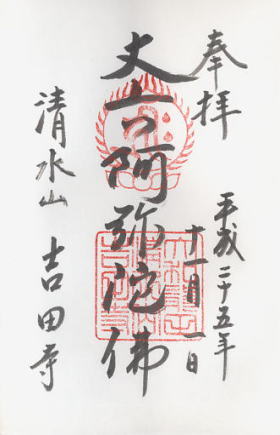 奉拝
平成二十五年
十一月一日
丈六阿弥陀佛
清水山 吉田寺